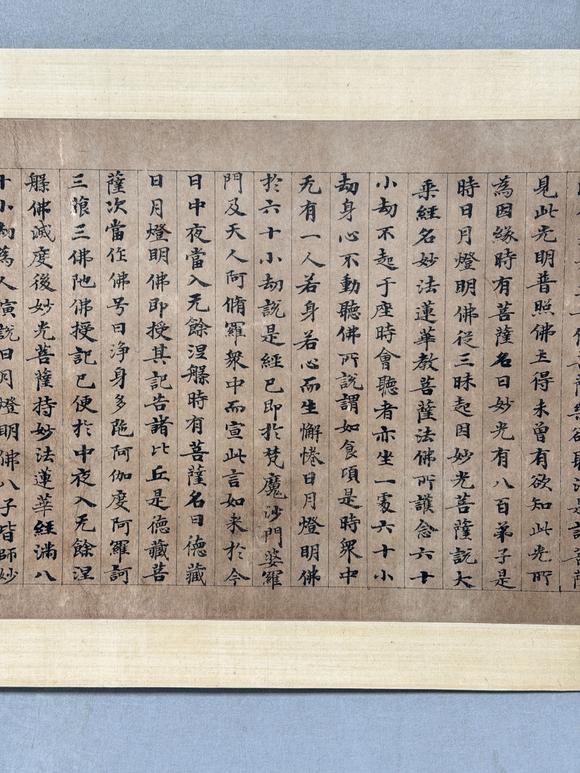 見此光明普照佛土得未曾有欲知此光所
為因緣時有菩薩名曰妙光有八百弟子是
時日月燈明佛從三昧起因妙光菩薩說大
乘經名妙法蓮華教菩薩法佛所護念六十
小劫不起于座時會聽者亦坐一處六十小
劫身心不動聽佛所說謂如食頃是時眾中
无有一人若身若心而生懈惓日月燈明佛
於六十小劫說是經已即於梵魔沙門婆羅
門及天人阿脩羅眾中而宣此言如来於今
日中夜當入无餘涅槃時有菩薩名曰德藏
日月燈明佛即授其記告諸比丘是德藏菩
薩次當作佛号曰淨身多陁阿伽度阿羅訶
三藐三佛陁佛授記已便於中夜入无餘涅
槃佛滅度後妙光菩薩持妙法蓮華經滿八
十小劫為人演說日月燈明佛八子皆師妙